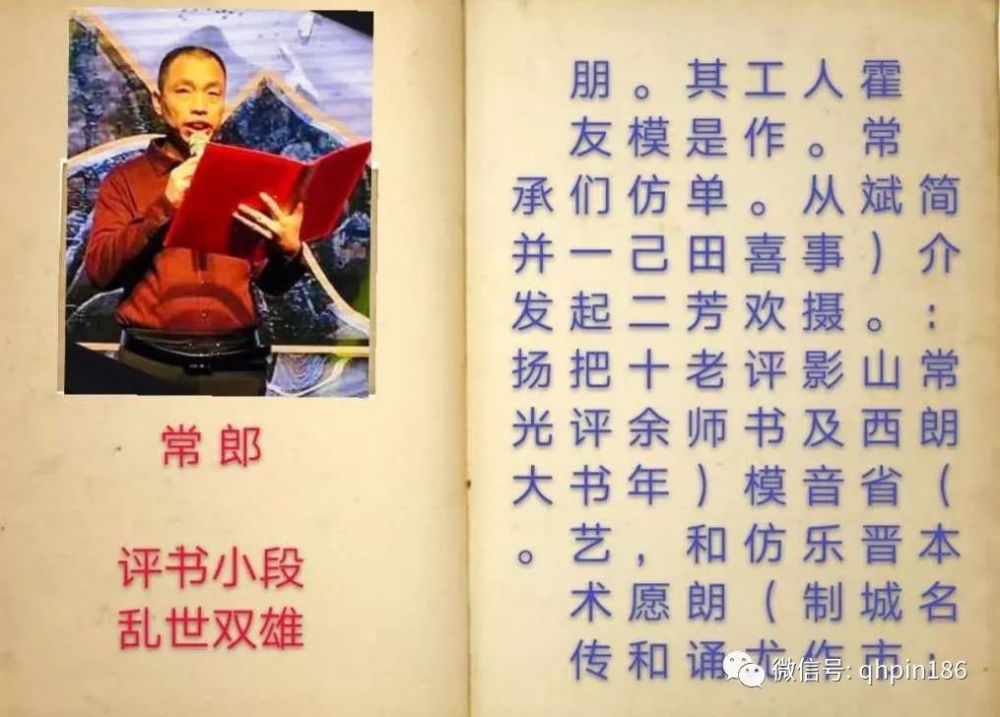 常郎
评书小段
乱世双雄
简介：常朗（本名：
霍常斌）。山西省晋城市
人。从事摄影及音乐制作
工作。喜欢评书模仿（尤
其是单田芳老师）和朗诵
。模仿己二十余年，愿和
朋友们一起把评书艺术传
承并发扬光大。
微信号: qhpin186